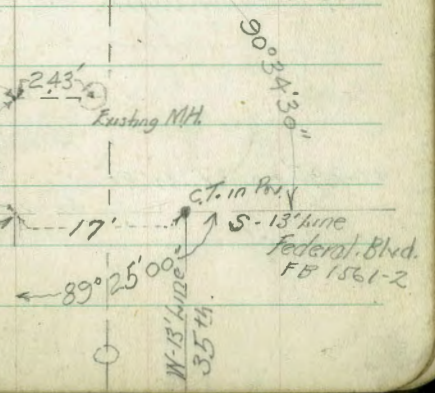 90°34'30"
2.43'
Existing M.H.
C.T. in Pav.
17'
S-13' Line
Federal. Blvd.
FB 1561-2
89°25'00"
W-13' Line
35th.